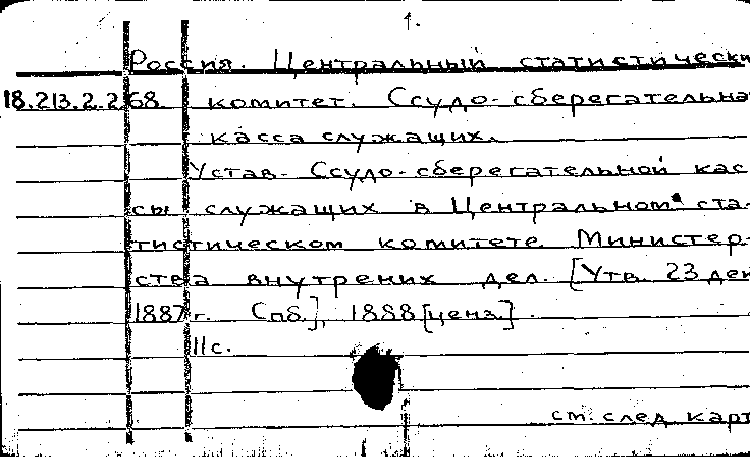 1.
Россия. Центральный статистически
18.213.2.268 комитет. Ссудо-сберегательна
касса служащих.
Устав Ссудо-сберегательной кас
сы служащих в Центральном ста-
тистическом комитете Министер-
ства внутрених дел. [Утв. 23 дек
1887 г. Спб.], 1888 [ценз.].
11с.
см. след. карт